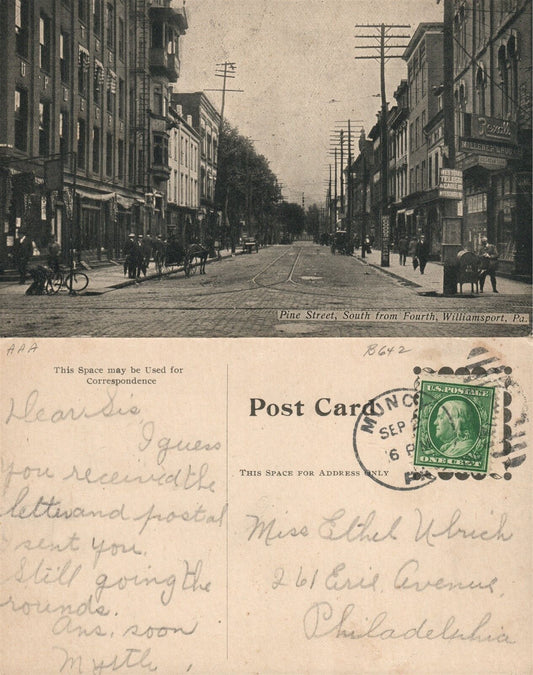 Rexall
Pine Street, South from Fourth, Williamsport, Pa.
AAA
B642
This Space may be Used for
Correspondence
Post Card
THIS SPACE FOR ADDRESS ONLY
MUNCY
SEP
6 P
PA.
U.S. POSTAGE
ONE CENT
Dear Sis
I guess
you received the
letter and postal
I sent you.
Still going the
rounds.
Ans. soon
Myrtle.
Miss Ethel Ulrich
261 Erie Avenue,
Philadelphia